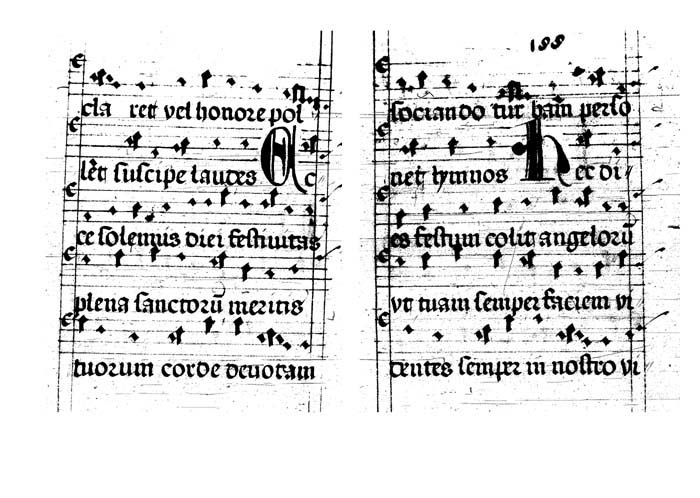 cla ret vel honore pol
let suscipe laudes Ac
ce solemus diei festiuitas
plena sanctorū meritis
tuorum corde deuotam
155
sociando tur bam perso
net hymnos Hec di
es festum colit angelorū
vt tuam semper faciem vi
dentes semper in nostro vi